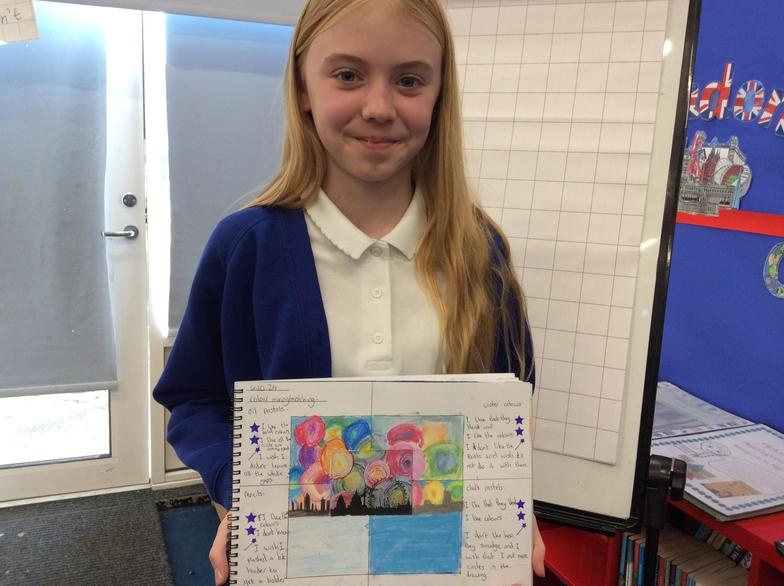 n't
don
6.10.24
colour mixing/matching:
oil pastels:
I like the
bold colours
I like all the
I wish I
didn't leave
all the white
gaps
water colours
I like that they
blend well
I like the colours
I don't like the
and wish to
not do it with them
pencils:
I like the
colours
I don't
I wish I
pushed a bit
harder to
get a bolder
chalk pastels
I like that they
I like colours
I don't like how
they smudge and I
wish that I put more
circles in the
drawing